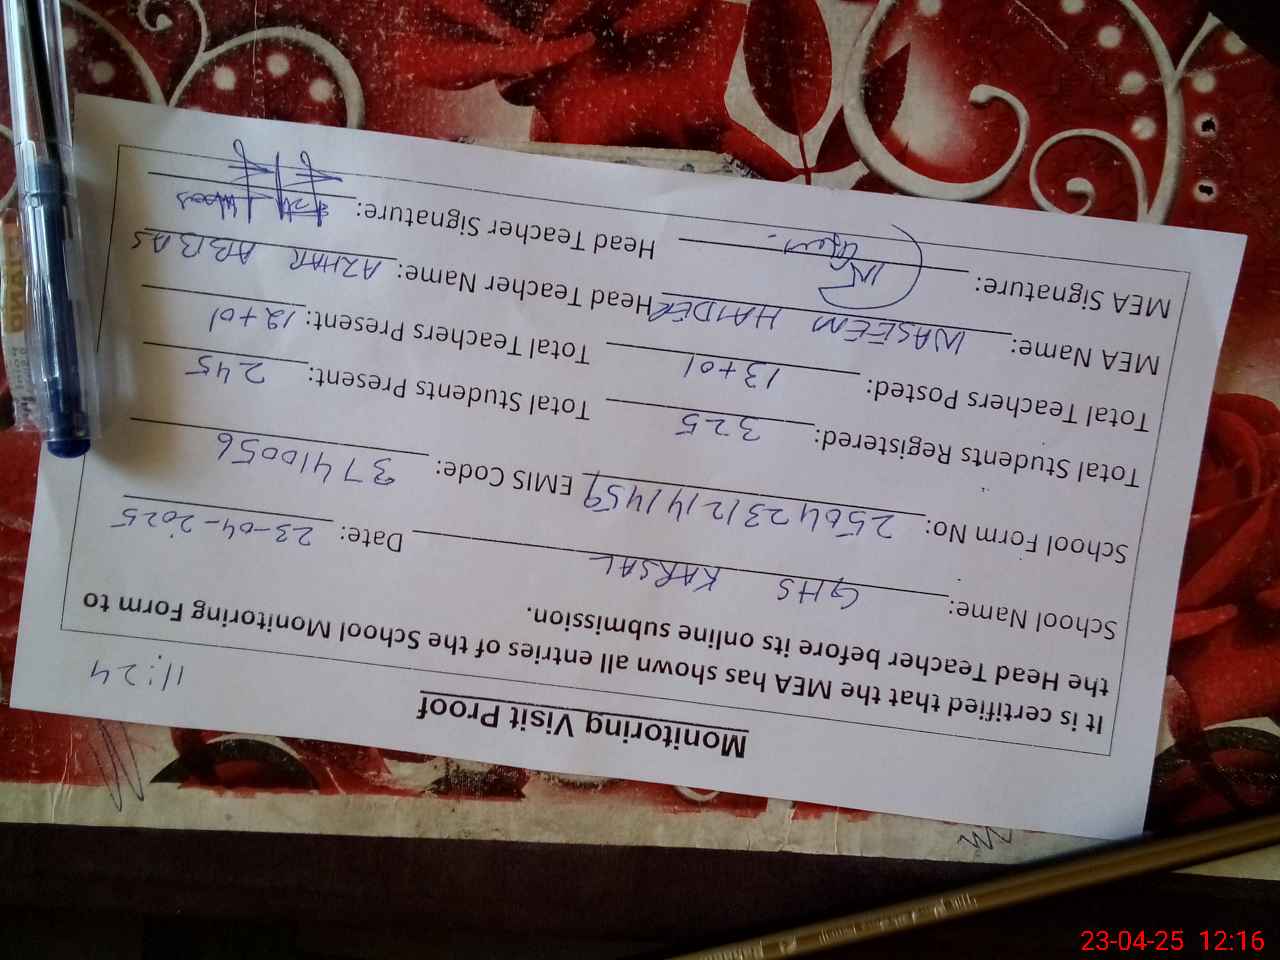 Monitoring Visit Proof
11:24
It is certified that the MEA has shown all entries of the School Monitoring Form to
the Head Teacher before its online submission.
School Name: GHS KARSAL Date: 23-04-2025
School Form No: 250423121411459 EMIS Code: 37410056
Total Students Registered: 325 Total Students Present: 245
Total Teachers Posted: 13+01 Total Teachers Present: 12+01
MEA Name: WASEEM HAIDER Head Teacher Name: AZHAR ABBAS
MEA Signature: Head Teacher Signature:
23-04-25 12:16